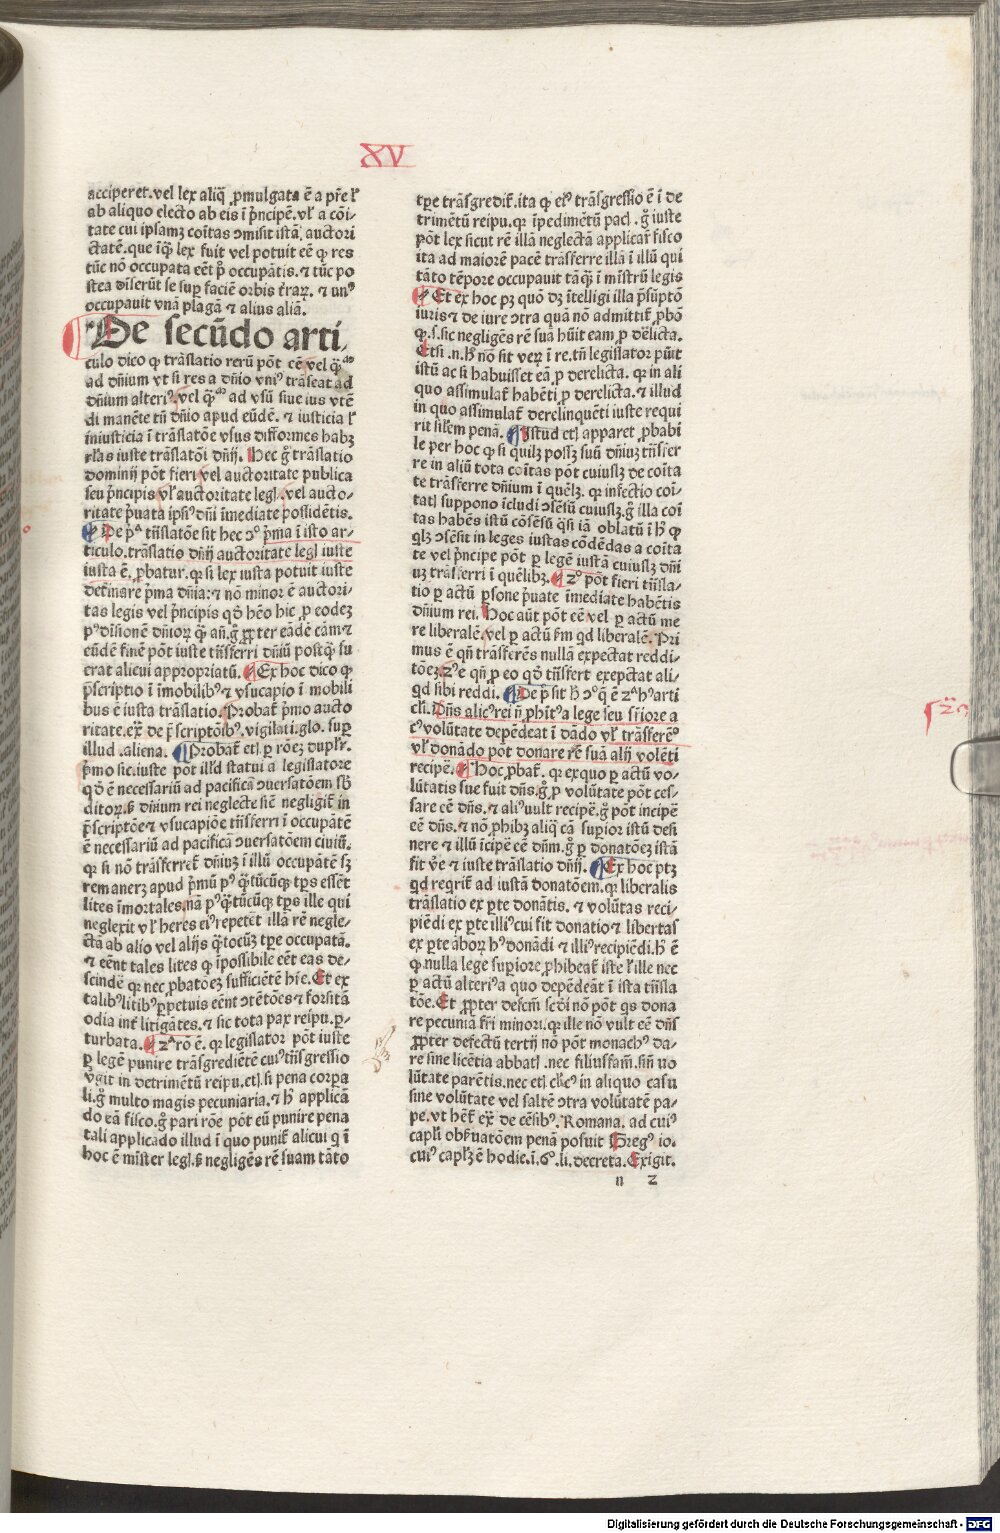 XV
acciperet. vel lex aliq̄ ꝓmulgata ē a pr̄e l'
ab aliquo electo ab eis ī p̄ncipē. vl' a cōi-
tate cui ipsamꝫ coītas ↄmisit istā auctori
ctatē. que īq̄ lex fuit vel potuit eē ꝙ res
tūc nō occupata eēt p̄ occupātis. ⁊ tūc po
stea diserūt se suꝑ faciē orbis t̄raꝝ. ⁊ unꝰ
occupavit vnā plagā ⁊ alius aliā.
De secūdo arti,
culo dico ꝙ trāslatio rerū pōt eē vel q̄
ad dn̄ium vt si res a dn̄io vniꝰ trāseat ad
dn̄ium alteriꝰ. vel q̄ ad vsū siue ius vtē
di manēte tn̄ dn̄io apud eūdē. ⁊ iusticia l'
iniusticia ī trāslatōe vsus difformes habꝫ
rl'as iuste trāslatōi dn̄ij. Hec g̊ trāslatio
dominij pōt fieri vel auctoritate publica
seu p̄ncipis vl' auctoritate legl. vel aucto-
ritate p̄uata ipsiꝰ dn̄i īmediate possidētis.
De pᵃ trāslatōe sit hec ↄᵒ p̄ma ī isto ar-
ticulo. trāslatio dn̄ij auctoritate legl iuste
iusta ē. ꝓbatur. qꝛ si lex iusta potuit iuste
det̄minare p̄ma dn̄ia: ⁊ nō minor ē auctori-
tas legis vel p̄ncipis qd̄ hēo hic ꝓ eodeꝫ
pꝰ diuisionē dn̄ioꝝ q̄ an̄. g̊ ꝓpter eādē cām ⁊
eūdē finē pōt iuste trāsferri dn̄iū postq̄ fu
erat alicui appropriatū. Ex hoc dico ꝙ
p̄scriptio ī imobilibꝰ ⁊ vsucapio ī mobili
bus ē iusta trāslatio. Probat̄ p̄mo aucto
ritate. ex̄ de p̄scriptōibꝰ. vigilāti. glo. suꝑ
illud. aliena. Probat̄ etꝫ ꝑ rōeꝫ dupl'r.
p̄mo sic. iuste pōt ill'd statui a legislatore
qd̄ ē necessariū ad pacificā ↄuersatōem sb̄
ditoꝝ. s̄ dn̄ium rei neglecte siē negligit̄ in
p̄scriptōe ⁊ vsucapiōe trāsferri ī occupātē
ē necessariū ad pacificā ↄuersatōem ciuiū.
qꝛ si nō trāsferret̄ dn̄iuꝫ ī illū occupātē sꝫ
remaneret apud p̄mū pꝰ q̄tūcūqꝫ tp̄s essēt
lites īmortales. nā pꝰ q̄tūcūqꝫ tp̄s ille qui
neglexit vl' heres eiꝰ repetēt illā rē negle-
ctā ab alio vel alijs q̄tocūꝫ tp̄e occupatā.
⁊ eēnt tales lites ꝙ īpossibile eēt eas de-
scindē qꝛ nec ꝓbatōeꝫ sufficiētē hr̄e. Et ex
talibꝰ litibꝰ ꝑpetuis eēnt ↄtētōes ⁊ forsitā
odia int̄ litigātes. ⁊ sic tota pax reipu. ꝑ-
turbata. 2ᵃ rō ē. qꝛ legislator pōt iuste
ꝑ legē punire trāsgrediētē cuiꝰ trāsgressio
vgit in detrimētū reipu. etꝫ. si pena corpa
li. g̊ multo magis pecuniaria. ⁊ hͦ applicā
do eā fisco. g̊ pari rōe pōt eū punire pena
tali applicādo illud ī quo punit̄ alicui q ī
hoc ē mīster legl. s̄ negligēs rē suam tāto
tp̄e trāsgredit̄. ita ꝙ eiꝰ trāsgressio ē ī de
trimētū reipu. qꝛ īpedimētū pacl. g̊ iuste
pōt lex sicut rē illā neglectā applicar̄ fisco
ita ad maiorē pacē trāsferre illā ī illū qui
tāto tēpore occupauit tāq̄ ī mīstrū legis
Et ex hoc pꝫ quō dꝫ ītelligi illa p̄sūptō
iuris ⁊ de iure ↄtra quā nō admittit̄ ꝓbō
ꝙ. s. sic negligēs rē suā hūit eam ꝓ dēlicta.
Etsi. n. hͦ nō sit veꝝ ī re. tn̄ legislator pūit
istū ac si habuisset eā ꝓ derelicta. qꝛ in ali
quo assimulat̄ habēti ꝓ derelicta. ⁊ illud
in quo assimulat̄ derelinquēti iuste requi
rit sil'em penā. Istud etꝫ apparet ꝓbabi
le per hoc ꝙ si quilꝫ possꝫ suū dn̄iuꝫ trāsfer
re in aliū tota coītas pōt cuiuslꝫ de coītate
te trāsferre dn̄ium ī quēlꝫ. qꝛ infectio coī-
tatꝫ suppono īcludi ↄsēsū cuiuslꝫ. g̊ illa coī
tas habēs istū cōsēsū q̄si iā oblatū ī hͦ ꝙ
qlꝫ ↄsēsit in leges iustas cōdēdas a coītate
te vel p̄ncipe pōt ꝑ legē iustā cuiuslꝫ dn̄i
uꝫ trāsferri ī quēlibꝫ. 2ᵒ pōt fieri trāsla-
tio ꝑ actū ꝑsone p̄uate īmediate habētis
dn̄ium rei. Hoc aūt pōt eē vel ꝑ actū me
re liberalē. vel ꝑ actū fm qd liberalē. Pri
mus ē qn̄ trāsferēs nullā expectat reddi-
tōeꝫ. 2ꝰ ē qn̄ ꝓ eo qd̄ trāsfert exepctat ali-
qd sibi reddi. De p̄ sit hͦ ↄᵒ q̄ ē 2ᵃ hꝰ arti
cli. Dn̄s alicꝰ rei n̄ ꝓhītꝰ a lege seu sn̄iore a
cꝰ volūtate depēdeat ī dādo vl' trāsferēꝰ
vl' donādo pōt donare rē suā alij volēti
recipē. Hoc ꝓbat̄. qꝛ exquo ꝑ actū vo-
lūtatis sue fuit dn̄s. g̊ ꝓ volūtate pōt ces-
sare eē dn̄s. ⁊ aliꝰ vult recipē. g̊ pōt incipē
eē dn̄s. ⁊ nō ꝓhibꝫ aliq̄ cā supior istū desi
nere ⁊ illū īcipē eē dn̄m. g̊ ꝑ donatōeꝫ istā
fit v̄e ⁊ iuste trāslatio dn̄ij. Ex hoc ptꝫ
qd reqrit̄ ad iustā donatōem. qꝛ liberalis
trāslatio ex ꝑte donātis. ⁊ volūtas reci-
piēdi ex ꝑte illiꝰ cui fit donatio ⁊ libertas
ex ꝑte āborꝫ hꝰ donādi ⁊ illiꝰ recipiēdi. hͦ ē
ꝙ nulla lege supiore ꝓhibeat̄ iste l' ille nec
ꝑ actū alteriꝰ a quo depēdeāt ī ista trāsla
tōe. Et ꝓpter defcm̄ scd̄i nō pōt qs dona
re pecuniā fr̄i minori. qꝛ ille nō vult eē dn̄s
ꝓpter defectū tertij nō pōt monachꝰ da-
re sine licētia abbatꝫ. nec filiusfam̄. sin̄ vo
lūtate parētis. nec etꝫ cl'icꝰ in aliquo casu
sine volūtate vel saltē ↄtra volūtatē pa-
pe. vt hēt̄ ex̄ de cēsibꝰ. Romana. ad cuiꝰ
capl'i obs̄uatōem penā posuit Gregꝰ io.
cuiꝰ caplꝫ ē hodie. ī. 6ᵒ. li. decreta. Exigit.
n 2